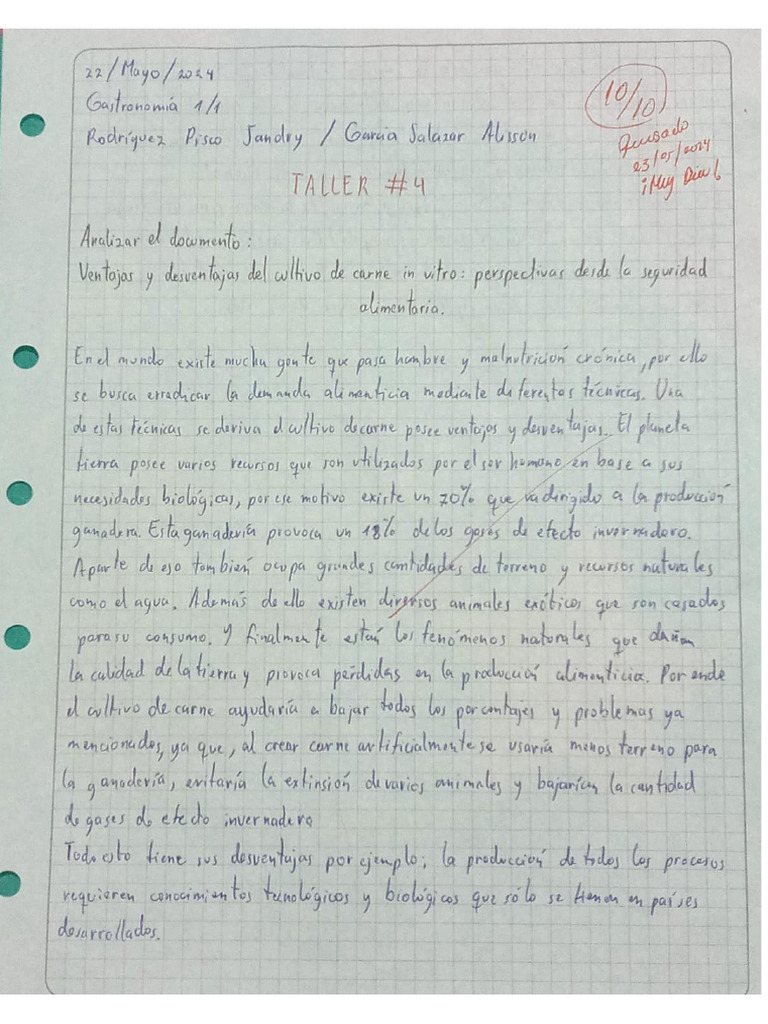 22/Mayo/2024
Gastronomía 1/1
Rodríguez Pisco Jandry / García Salazar Alisson
10/10
Revisado
23/05/2024
¡Muy Bien!
TALLER #4
Analizar el documento:
Ventajas y desventajas del cultivo de carne in vitro: perspectivas desde la seguridad
alimentaria.
En el mundo existe mucha gente que pasa hambre y malnutrición crónica, por ello
se busca erradicar la demanda alimenticia mediante diferentes técnicas. Una
de estas técnicas se deriva el cultivo de carne posee ventajas y desventajas. El planeta
tierra posee varios recursos que son utilizados por el ser humano en base a sus
necesidades biológicas, por ese motivo existe un 70% que va dirigido a la producción
ganadera. Esta ganadería provoca un 18% de los gases de efecto invernadero.
Aparte de eso también ocupa grandes cantidades de terreno y recursos naturales
como el agua. Además de ello existen diversos animales exóticos que son casados
para su consumo. Y finalmente están los fenómenos naturales que dañan
la calidad de la tierra y provoca pérdidas en la producción alimenticia. Por ende
el cultivo de carne ayudaría a bajar todos los porcentajes y problemas ya
mencionados, ya que, al crear carne artificialmente se usaría menos terreno para
la ganadería, evitaría la extinsión de varios animales y bajarían la cantidad
de gases de efecto invernadero
Todo esto tiene sus desventajas por ejemplo; la producción de todos los procesos
requieren conocimientos tecnológicos y biológicos que sólo se tienen en países
desarrollados.